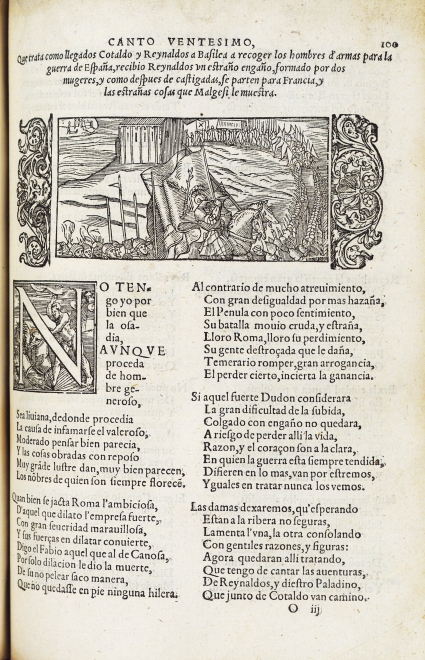 CANTO VENTESIMO,
100
Que trata como llegados Cotaldo y Reynaldos a Basilea a recoger los hombres d'armas para la
guerra de España, recibio Reynaldos vn estraño engaño, formado por dos
mugeres, y como despues de castigadas, se parten para Francia, y
las estrañas cosas que Malgesi le muestra.
NO TEN-
go yo por
bien que
la osa-
dia,
AVNQVE
proceda
de hom-
bre ge-
neroso,
Sea liuiana, de donde procedia
La causa de infamarse el valeroso,
Moderado pensar bien parecia,
Y las cosas obradas con reposo
Muy gráde lustre dan, muy bien parecen,
Los nóbres de quien son siempre florecé.
Quan bien se jacta Roma l'ambiciosa,
D'aquel que dilato l'empresa fuerte,
Con gran seueridad marauillosa,
Y sus fuerças en dilatar conuierte,
Digo el Fabio aquel que al de Canosa,
Por solo dilacion le dio la muerte,
De su no pelear saco manera,
Que no quedasse en pie ninguna hilera.
Al contrario de mucho atreuimiento,
Con gran desigualdad por mas hazaña,
El Penula con poco sentimiento,
Su batalla mouio cruda, y estraña,
Lloro Roma, lloro su perdimiento,
Su gente destroçada que le daña,
Temerario romper, gran arrogancia,
El perder cierto, incierta la ganancia.
Si aquel fuerte Dudon considerara
La gran dificultad de la subida,
Colgado con engaño no quedara,
A riesgo de perder alli la vida,
Razon, y el coraçon son a la clara,
En quien la guerra esta siempre tendida,
Difieren en lo mas, van por estremos,
Y guales en tratar nunca los vemos.
Las damas dexaremos, qu'esperando
Estan a la ribera no seguras,
Lamenta l'vna, la otra consolando
Con gentiles razones, y figuras:
Agora quedaran alli tratando,
Que tengo de cantar las auenturas,
De Reynaldos, y diestro Paladino,
Que junto de Cotaldo van camino.
O iij